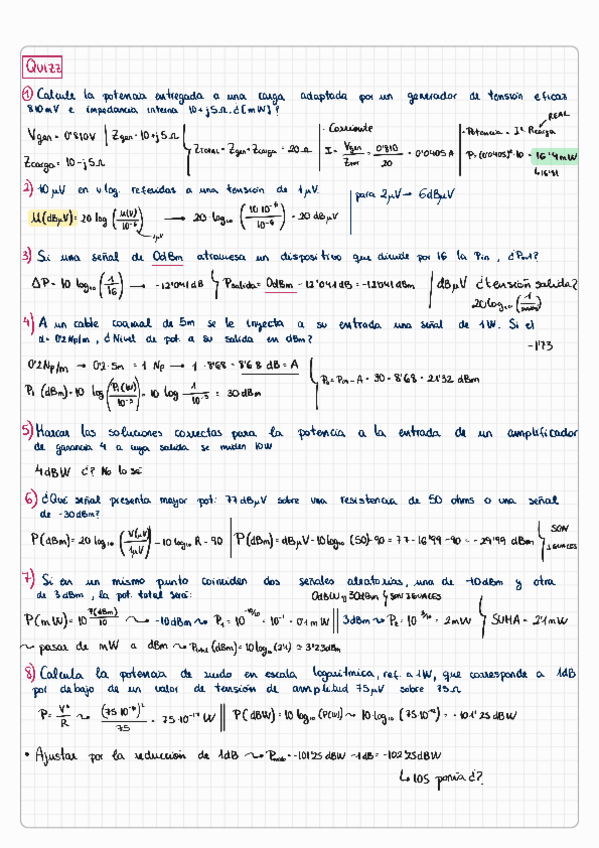 Quizz
1) Calcule la potencia entregada a una carga adaptada por un generador de tensión eficaz
810mV e impedancia interna 10+j5Ω. ¿[mW]?
Vgen = 0'810V | Zgen = 10+j5Ω
Zcarga = 10-j5Ω
Ztotal = Zgen + Zcarga = 20Ω
· Corriente
I = Vgen/Ztot = 0'810/20 = 0'0405A
· Potencia = I² Rcarga
REAL
P = (0'0405)²·10 = 16'4mW
2) 10μV en u log. referidas a una tensión de 1μV.
para 2μV → 6dBμV
U(dBμV) = 20 log (U(V)/10⁻⁶) → 20 log₁₀ (10·10⁻⁶/10⁻⁶) = 20 dBμV
1μV
3) Si una señal de 0dBm atraviesa un dispositivo que divide por 16 la Pin, ¿Pout?
ΔP = 10 log₁₀ (1/16) → -12'041dB
Psalida = 0dBm - 12'041dB = -12'041dBm
dBμV ¿tensión salida?
20log₁₀
4) A un cable coaxial de 5m se le inyecta a su entrada una señal de 1W. Si el
α = 0'2Np/m, ¿Nivel de pot. a su salida en dBm?
-1'73
0'2Np/m → 0'2·5m = 1 Np → 1·8'68 = 8'68 dB = A
P₁ (dBm) = 10 log (P₁(W)/10⁻³) = 10 log 1/10⁻³ = 30 dBm
P₀ = Pin - A = 30 - 8'68 = 21'32 dBm
5) Marcar las soluciones correctas para la potencia a la entrada de un amplificador
de ganancia 4 a cuya salida se miden 10W
4dBW ¿? No lo sé
6) ¿Qué señal presenta mayor pot: 77dBμV sobre una resistencia de 50 ohms o una señal
de -30dBm?
P(dBm) = 20 log (V(μV)/1μV) - 10 log₁₀ R - 90 | P(dBm) = dBμV - 10log₁₀ (50) - 90 = 77 - 16'99 - 90 = -29'99 dBm
SON
IGUALES
7) Si en un mismo punto coinciden dos señales aleatorias, una de -10dBm y otra
de 3dBm, la pot. total será:
0dBW y 30dBm SON IGUALES
P(mW) = 10^(P(dBm)/10) → -10dBm → P₁ = 10^(-10/10) = 10⁻¹ = 0'1mW || 3dBm → P₂ = 10^(3/10) = 2mW
SUMA = 2'1mW
→ pasar de mW a dBm → Ptotal (dBm) = 10log₁₀ (2'1) = 3'23dBm
8) Calcula la potencia de ruido en escala logarítmica, ref. a 1W, que corresponde a 1dB
por debajo de un valor de tensión de amplitud 75μV sobre 75Ω
P = V²/R → (75·10⁻⁶)²/75 = 75·10⁻¹² W || P(dBW) = 10 log (P(W)) → 10·log₁₀ (75·10⁻¹²) = -101'25dBW
• Ajustar por la reducción de 1dB → Pruido = -101'25dBW - 1dB = -102'25dBW
105 ponía ¿?